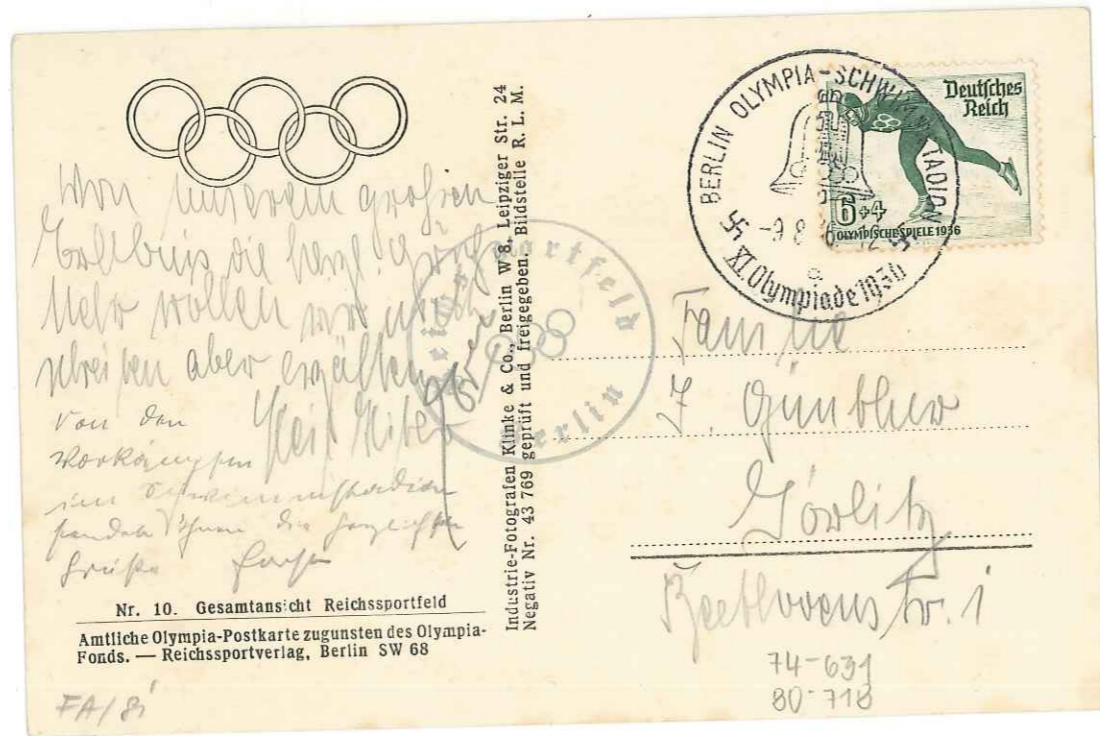 Von unserem großen
Erlebnis die herzl. Grüße
Mehr wollen wir nicht
schreiben aber erzählen
Von den
Vorkämpfen
im Schwimmstadion
senden Ihnen die herzlichsten
Grüße
Nr. 10. Gesamtansicht Reichssportfeld
Amtliche Olympia-Postkarte zugunsten des Olympia-
Fonds. — Reichssportverlag, Berlin SW 68
FA/8i
Industrie-Fotografen Klinke & Co., Berlin W 8, Leipziger Str. 24
Negativ Nr. 43 769 geprüft und freigegeben. Bildstelle R. L. M.
Reichssportfeld
Berlin
BERLIN OLYMPIA-SCHWIMMSTADION
-9 8
a
XI. Olympiade 1936
Deutsches
Reich
6+4
OLYMPISCHE SPIELE 1936
Familie
Günther
Görlitz
Beethovenstr. 1
74-631
80-718